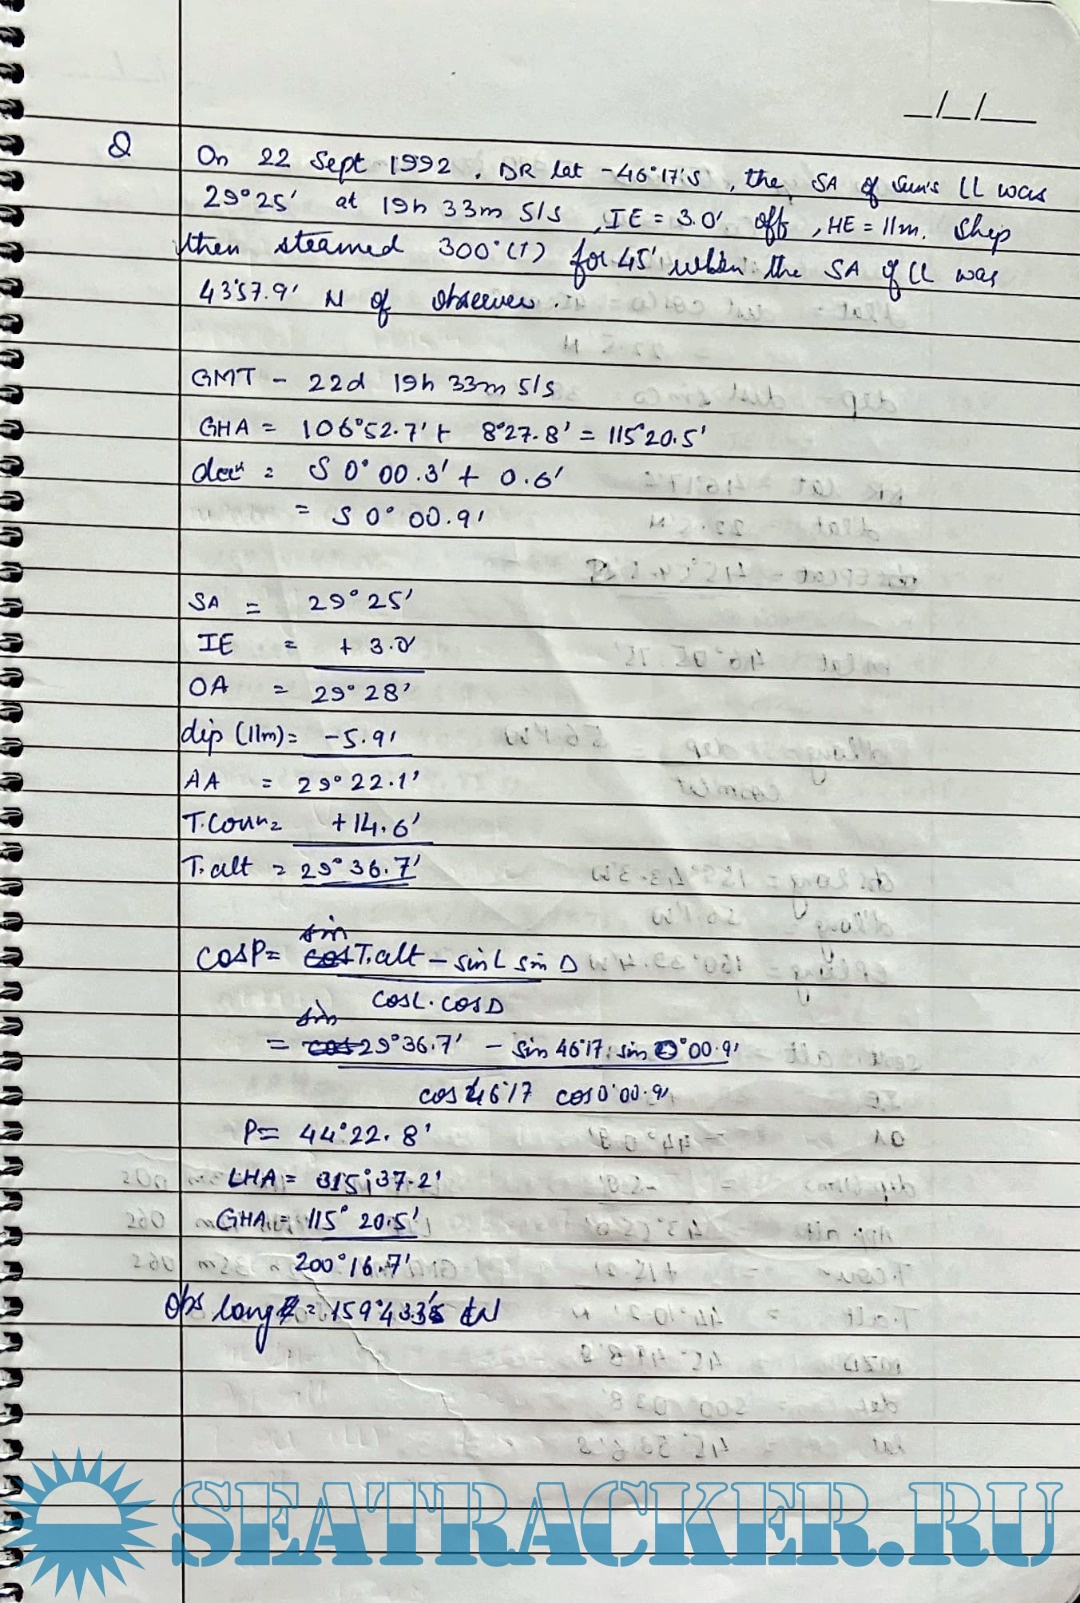 _/_/__
Q On 22 Sept 1992. DR lat -46°17'S, the SA of Sun's LL was
29°25' at 19h 33m 51s, IE = 3.0' off, HE = 11m. Ship
then steamed 300°(T) for 45' when the SA of LL was
43°57.9' N of observer.
GMT - 22d 19h 33m 51s
GHA = 106°52.7' + 8°27.8' = 115°20.5'
decn = S 0° 00.3' + 0.6'
= S 0° 00.9'
SA = 29° 25'
IE = + 3.0'
OA = 29° 28'
dip (11m) = -5.9'
AA = 29° 22.1'
T.Corrn = +14.6'
T.alt = 29° 36.7'
cosP = sin T.alt - sinL sin D
cosL. cosD
= sin 29°36.7' - sin 46°17' sin 0°00.9'
cos 46°17 cos 0°00.9'
P = 44°22.8'
LHA = 315°37.2'
GHA = 115° 20.5'
200°16.7'
Obs long = 159°43.3' W
SEATRACKER.RU